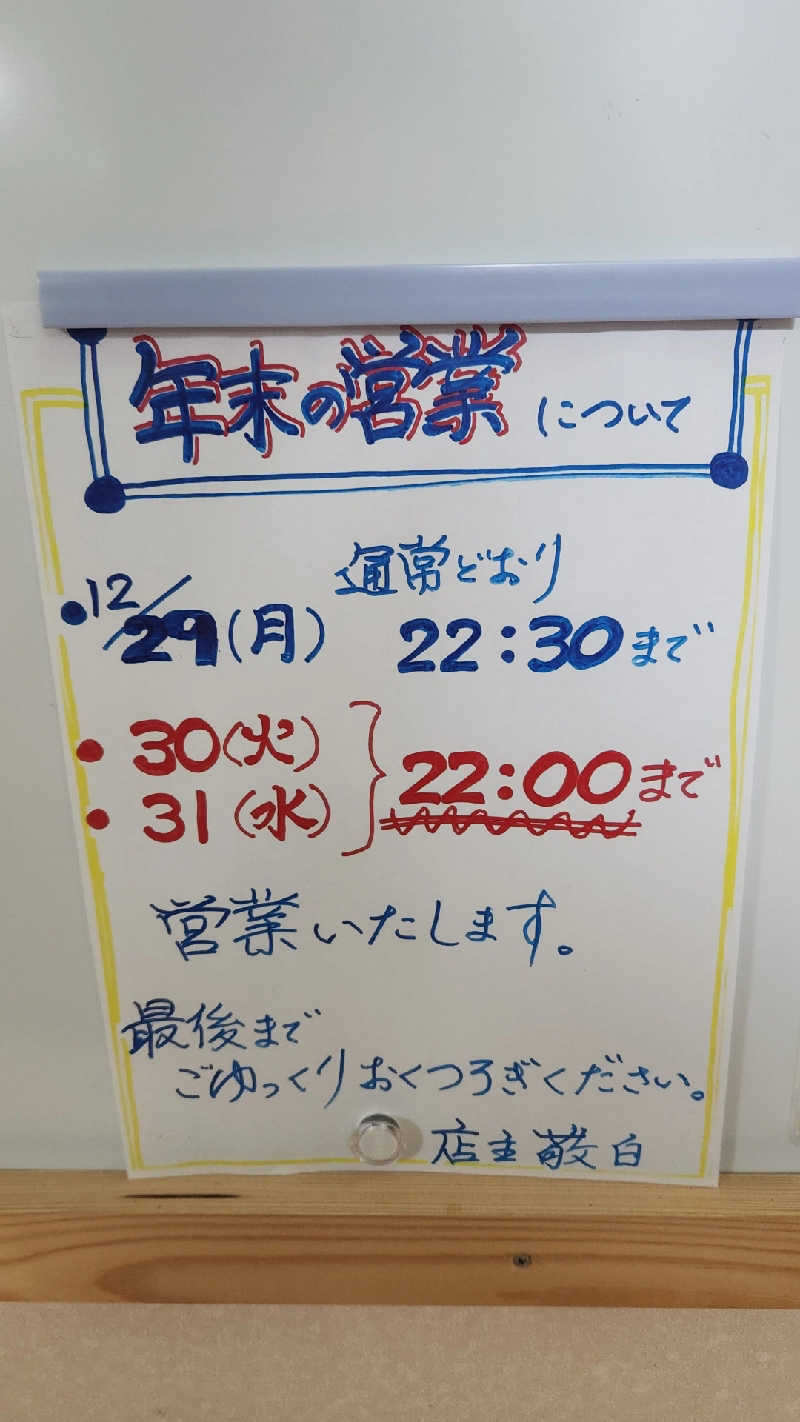 年末の営業について
通常どおり
・12/29(月) 22:30まで
・30(火)
・31(水) 22:00まで
営業いたします。
最後まで
ごゆっくりおくつろぎください。
店主敬白